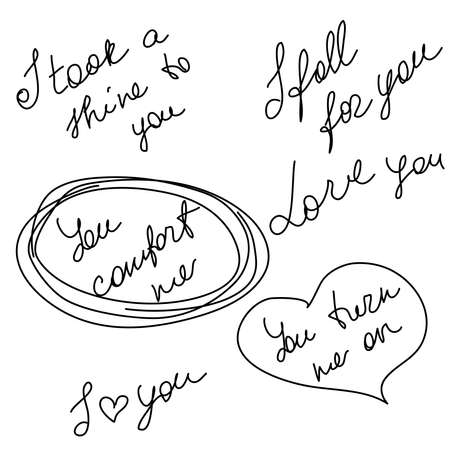 I took a
shine to
you
I fall
for you
Love you
You
comfort
me
You turn
me on
I ♡ you